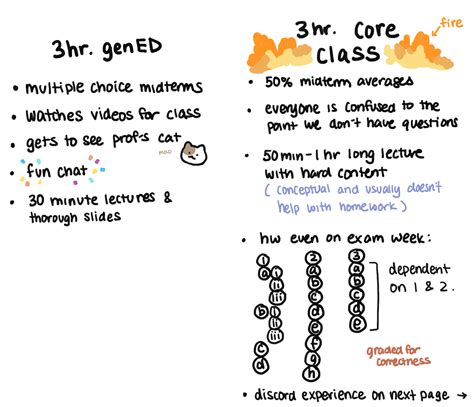 3hr. genED
• multiple choice midterms
• watches videos for class
• gets to see prof's cat
mao
• fun chat
• 30 minute lectures &
thorough slides
3hr. core
class
fire
• 50% midterm averages
• everyone is confused to the
point we don't have questions
• 50min-1hr long lecture
with hard content
( conceptual and usually doesn't
help with homework)
• hw even on exam week:
1
a i
ii
iii
b i
ii
iii
c
d
2
a
b
c
d
e
f
g
h
3
a
b
c
d
e
dependent
on 1 & 2.
graded for
correctness
• discord experience on next page →